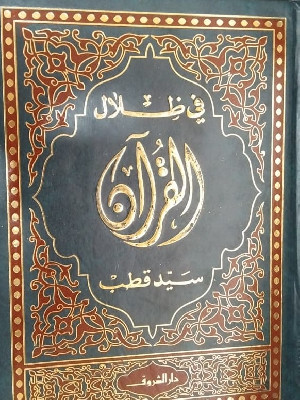 في ظلال
القرآن
سيد قطب
دار الشروق